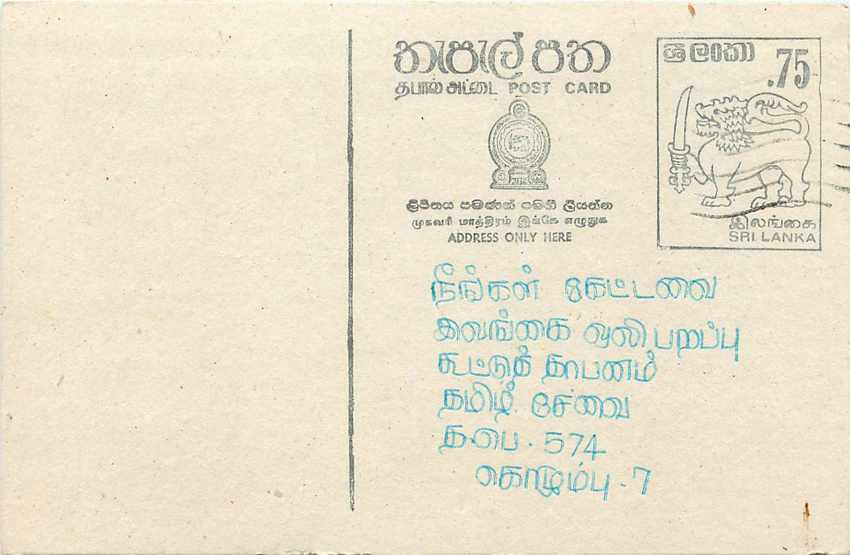 තැපැල් පත
தபால் அட்டை POST CARD
ලිපිනය පමණක් මෙහි ලියන්න
முகவரி மாத்திரம் இங்கே எழுதுக
ADDRESS ONLY HERE
ශ්‍රී ලංකා
.75
இலங்கை
SRI LANKA
நீங்கள் கேட்டவை
இலங்கை ஒலிபரப்பு
கூட்டுத் தாபனம்
தமிழ் சேவை
த.பெ. 574
கொழும்பு - 7